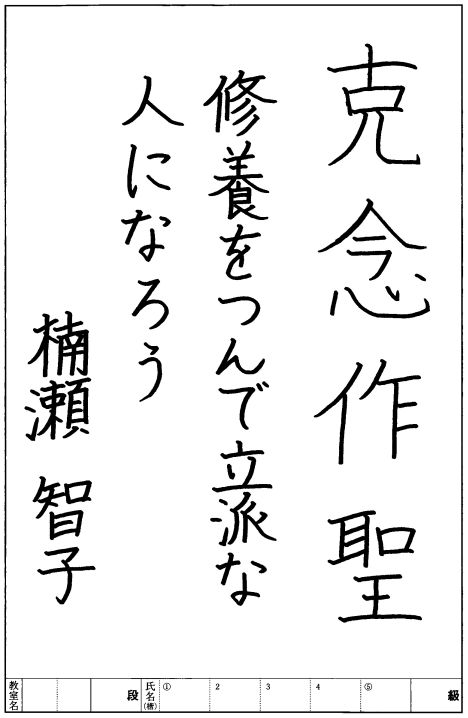 克念作聖
修養をつんで立派な
人になろう
楠瀬 智子
級 ⑤ 4 3 2 ① 氏名(楷) 段 教室名